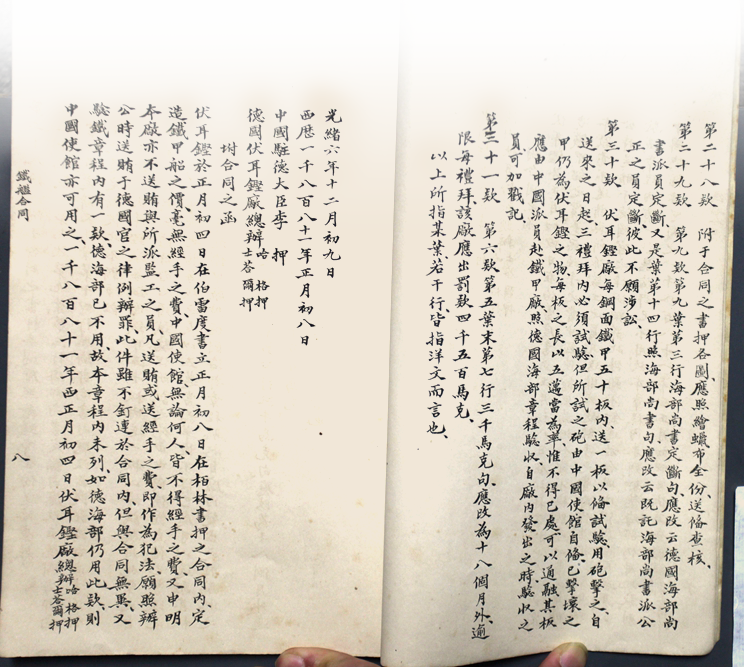 第二十八欵　附于合同之書押各圖應照繪蠟布全份送俻查核
第二十九欵　第九欵第九葉第三行海部尚書定斷句應改云德國海部尚
書派員定斷又是葉第十四行照海部尚書句應改云既託海部尚書派公
正之員定斷彼此不願涉訟
第三十欵　伏耳鏗廠每鋼面鐵甲五十板內送一板以俻試驗用砲擊之自
送來之日起三禮拜內必須試驗但所試之砲由中國使館自俻已擊壞之
甲仍為伏耳鏗之物每板之長以五邁當為準惟不得已處可以通融其板
應由中國派員赴鐵甲廠照德國海部章程驗收自廠內發出之時驗收之
員可加戳記
第三十一欵　第六欵第五葉末第七行三千馬克句應改為十八個月外逾
限每禮拜該廠應出罰欵四千五百馬克
以上所指某葉若干行皆指洋文而言也
光緒六年十二月初九日
西歷一千八百八十一年正月初八日
中國駐德大臣李　押
德國伏耳鏗廠總辦哈格押
士荅爾押
坿合同之函
伏耳鏗於正月初四日在伯雷度書立正月初八日在柏林書押之合同內定
造鐵甲船之價毫無經手之費中國使館無論何人皆不得經手之費又申明
本廠亦不送賄與所派監工之員凡送賄或送經手之費即作為犯法願照辦
公時送賄于德國官之律例辦罪此件雖不釘連於合同內但與合同無異又
驗鐵章程內有一欵德海部已不用故本章程內未列如德海部仍用此欵則
中國使館亦可用之一千八百八十一年西正月初四日伏耳鏗廠總辦哈格押
士荅爾押
鐵艦合同
八